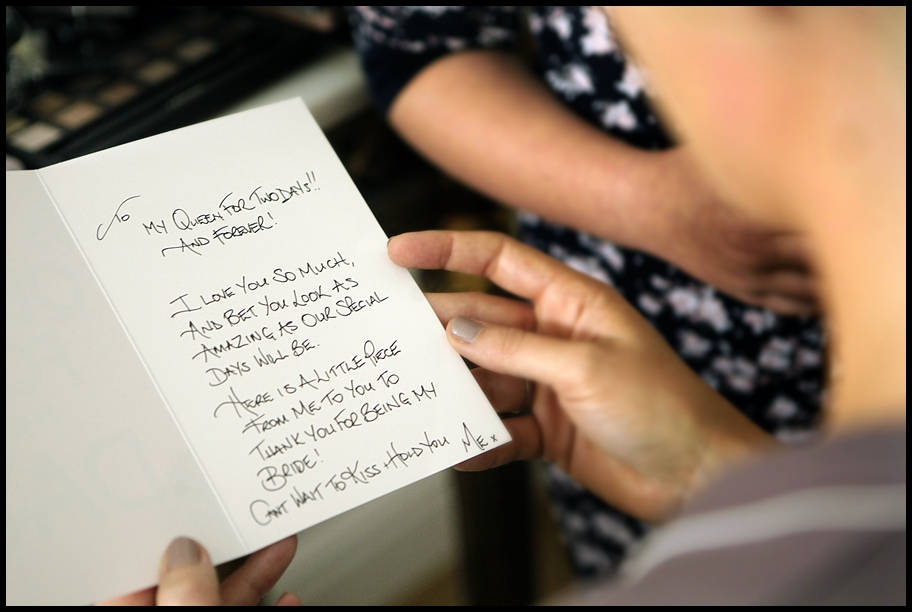 To
MY QUEEN FOR TWO DAYS!!
AND FOREVER!
I LOVE YOU SO MUCH,
AND BET YOU LOOK AS
AMAZING AS OUR SPECIAL
DAYS WILL BE.
HERE IS A LITTLE PIECE
FROM ME TO YOU TO
THANK YOU FOR BEING MY
BRIDE!
CANT WAIT TO KISS + HOLD YOU
ME x